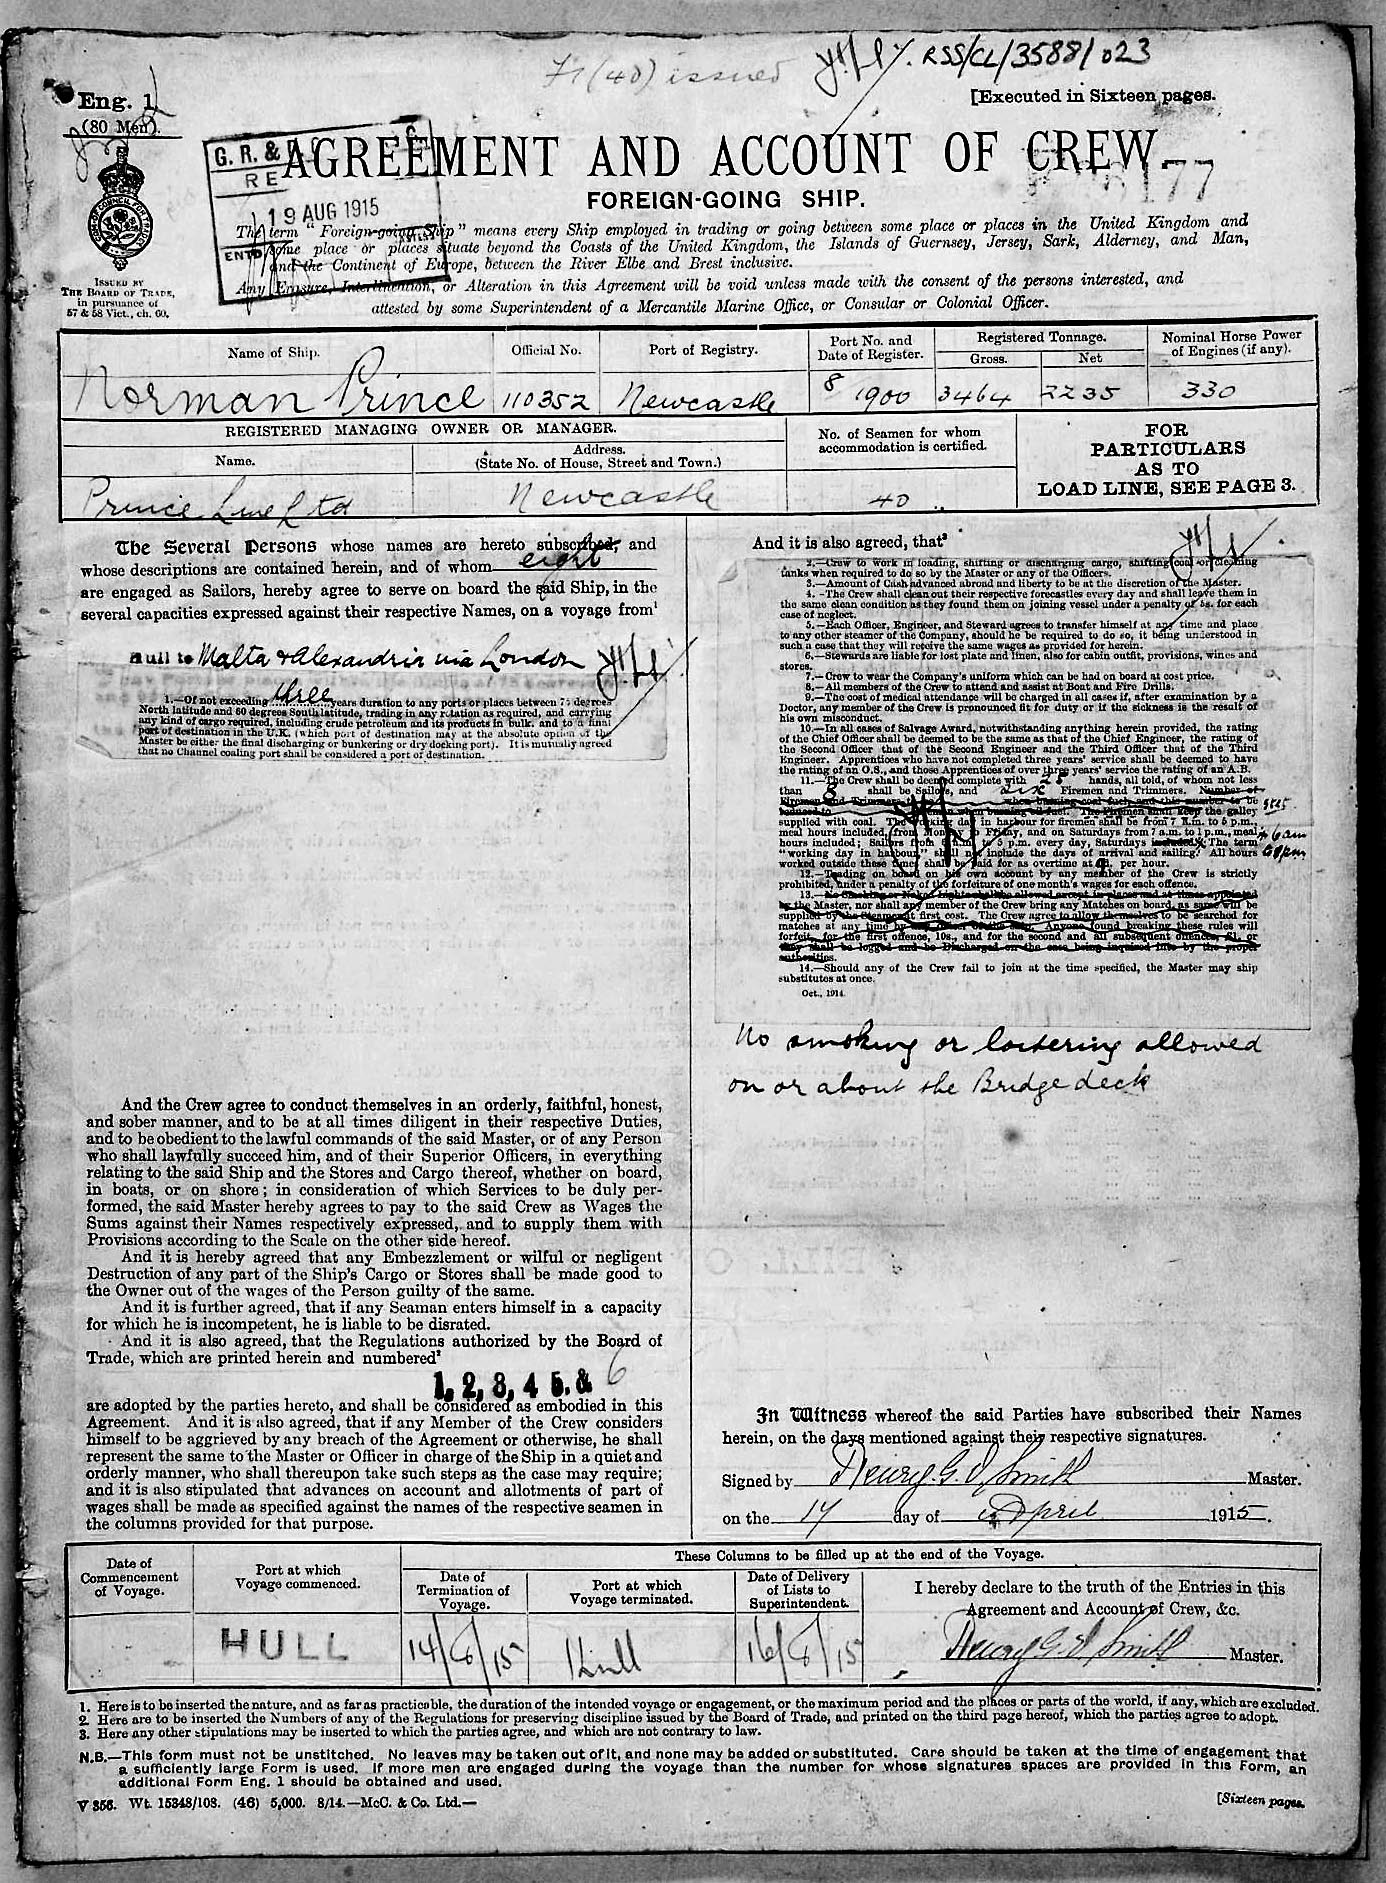 F1 (40) issued
RSS/CL/3588/023
Eng. 1
(80 Men).
[Executed in Sixteen pages.
G. R. &
RE
19 AUG 1915
ENTD
AGREEMENT AND ACCOUNT OF CREW
177
FOREIGN-GOING SHIP.
The term "Foreign-going Ship" means every Ship employed in trading or going between some place or places in the United Kingdom and
some place or places situate beyond the Coasts of the United Kingdom, the Islands of Guernsey, Jersey, Sark, Alderney, and Man,
and the Continent of Europe, between the River Elbe and Brest inclusive.
Any Erasure, Interlineation, or Alteration in this Agreement will be void unless made with the consent of the persons interested, and
attested by some Superintendent of a Mercantile Marine Office, or Consular or Colonial Officer.
ISSUED BY
THE BOARD OF TRADE,
in pursuance of
57 & 58 Vict., ch. 60.
Name of Ship.
Official No.
Port of Registry.
Port No. and
Date of Register.
Registered Tonnage.
Gross.
Net
Nominal Horse Power
of Engines (if any).
Norman Prince
110352
Newcastle
8 1900
3464
2235
330
REGISTERED MANAGING OWNER OR MANAGER.
Name.
Address.
(State No. of House, Street and Town.)
No. of Seamen for whom
accommodation is certified.
FOR
PARTICULARS
AS TO
LOAD LINE, SEE PAGE 3.
Prince Line Ltd
Newcastle
40
The Several Persons whose names are hereto subscribed, and
whose descriptions are contained herein, and of whom eight
are engaged as Sailors, hereby agree to serve on board the said Ship, in the
several capacities expressed against their respective Names, on a voyage from¹
Hull to Malta & Alexandria via London
1.—Of not exceeding three years duration to any ports or places between 75 degrees
North latitude and 60 degrees South latitude, trading in any rotation as required, and carrying
any kind of cargo required, including crude petroleum and its products in bulk, and to a final
port of destination in the U.K. (which port of destination may at the absolute option of the
Master be either the final discharging or bunkering or dry docking port). It is mutually agreed
that no Channel coaling port shall be considered a port of destination.
And the Crew agree to conduct themselves in an orderly, faithful, honest,
and sober manner, and to be at all times diligent in their respective Duties,
and to be obedient to the lawful commands of the said Master, or of any Person
who shall lawfully succeed him, and of their Superior Officers, in everything
relating to the said Ship and the Stores and Cargo thereof, whether on board,
in boats, or on shore; in consideration of which Services to be duly per-
formed, the said Master hereby agrees to pay to the said Crew as Wages the
Sums against their Names respectively expressed, and to supply them with
Provisions according to the Scale on the other side hereof.
And it is hereby agreed that any Embezzlement or wilful or negligent
Destruction of any part of the Ship's Cargo or Stores shall be made good to
the Owner out of the wages of the Person guilty of the same.
And it is further agreed, that if any Seaman enters himself in a capacity
for which he is incompetent, he is liable to be disrated.
And it is also agreed, that the Regulations authorized by the Board of
Trade, which are printed herein and numbered²
1, 2, 3, 4 5. & 6
are adopted by the parties hereto, and shall be considered as embodied in this
Agreement. And it is also agreed, that if any Member of the Crew considers
himself to be aggrieved by any breach of the Agreement or otherwise, he shall
represent the same to the Master or Officer in charge of the Ship in a quiet and
orderly manner, who shall thereupon take such steps as the case may require;
and it is also stipulated that advances on account and allotments of part of
wages shall be made as specified against the names of the respective seamen in
the columns provided for that purpose.
And it is also agreed, that³
2.—Crew to work in loading, shifting or discharging cargo, shifting coal or cleaning
tanks when required to do so by the Master or any of the Officers.
3.—Amount of Cash advanced abroad and liberty to be at the discretion of the Master.
4.—The Crew shall clean out their respective forecastles every day and shall leave them in
the same clean condition as they found them on joining vessel under a penalty of 5s. for each
case of neglect.
5.—Each Officer, Engineer, and Steward agrees to transfer himself at any time and place
to any other steamer of the Company, should he be required to do so, it being understood in
such a case that they will receive the same wages as provided for herein.
6.—Stewards are liable for lost plate and linen, also for cabin outfit, provisions, wines and
stores.
7.—Crew to wear the Company's uniform which can be had on board at cost price.
8.—All members of the Crew to attend and assist at Boat and Fire Drills.
9.—The cost of medical attendance will be charged in all cases if, after examination by a
Doctor, any member of the Crew is pronounced fit for duty or if the sickness is the result of
his own misconduct.
10.—In all cases of Salvage Award, notwithstanding anything herein provided, the rating
of the Chief Officer shall be deemed to be the same as that of the Chief Engineer, the rating of
the Second Officer that of the Second Engineer and the Third Officer that of the Third
Engineer. Apprentices who have not completed three years' service shall be deemed to have
the rating of an O.S., and those Apprentices of over three years' service the rating of an A.B.
11.—The Crew shall be deemed complete with 25 hands, all told, of whom not less
than 8 shall be Sailors, and six Firemen and Trimmers. Number of
Firemen and Trimmers to be when burning coal fuel and this number to be
reduced to men when burning oil fuel. The Firemen shall keep the galley
supplied with coal. The working day in harbour for firemen shall be from 7 a.m. to 5 p.m.,
meal hours included, from Monday to Friday, and on Saturdays from 7 a.m. to 1 p.m., meal
hours included; Sailors from 6 a.m. to 5 p.m. every day, Saturdays included. The term
"working day in harbour" shall not include the days of arrival and sailing. All hours
worked outside these times shall be paid for as overtime at 9 per hour.
× 6 am
12.—Trading on board on his own account by any member of the Crew is strictly
prohibited, under a penalty of the forfeiture of one month's wages for each offence.
13.—No Smoking or Naked Lights shall be allowed except in places and at times appointed
by the Master, nor shall any member of the Crew bring any Matches on board, as same will be
supplied by the Steamer at first cost. The Crew agree to allow themselves to be searched for
matches at any time by any Officer of the ship. Anyone found breaking these rules will
forfeit, for the first offence, 10s., and for the second and all subsequent offences, £1, or
they shall be logged and be Discharged on the case being inquired into by the proper
authorities.
14.—Should any of the Crew fail to join at the time specified, the Master may ship
substitutes at once.
Oct., 1914.
No smoking or loitering allowed
on or about the Bridge deck
In Witness whereof the said Parties have subscribed their Names
herein, on the days mentioned against their respective signatures.
Signed by Henry G. D. Smith Master.
on the 17 day of April 1915.
Date of
Commencement
of Voyage.
Port at which
Voyage commenced.
These Columns to be filled up at the end of the Voyage.
Date of
Termination of
Voyage.
Port at which
Voyage terminated.
Date of Delivery
of Lists to
Superintendent.
I hereby declare to the truth of the Entries in this
Agreement and Account of Crew, &c.
HULL
14/8/15
Hull
16/8/15
Henry G. D. Smith Master.
1. Here is to be inserted the nature, and as far as practicable, the duration of the intended voyage or engagement, or the maximum period and the places or parts of the world, if any, which are excluded.
2. Here are to be inserted the Numbers of any of the Regulations for preserving discipline issued by the Board of Trade, and printed on the third page hereof, which the parties agree to adopt.
3. Here any other stipulations may be inserted to which the parties agree, and which are not contrary to law.
N.B.—This form must not be unstitched. No leaves may be taken out of it, and none may be added or substituted. Care should be taken at the time of engagement that
a sufficiently large Form is used. If more men are engaged during the voyage than the number for whose signatures spaces are provided in this Form, an
additional Form Eng. 1 should be obtained and used.
V 356. Wt. 15348/103. (46) 5,000. 8/14.—McC. & Co. Ltd.—
[Sixteen pages.